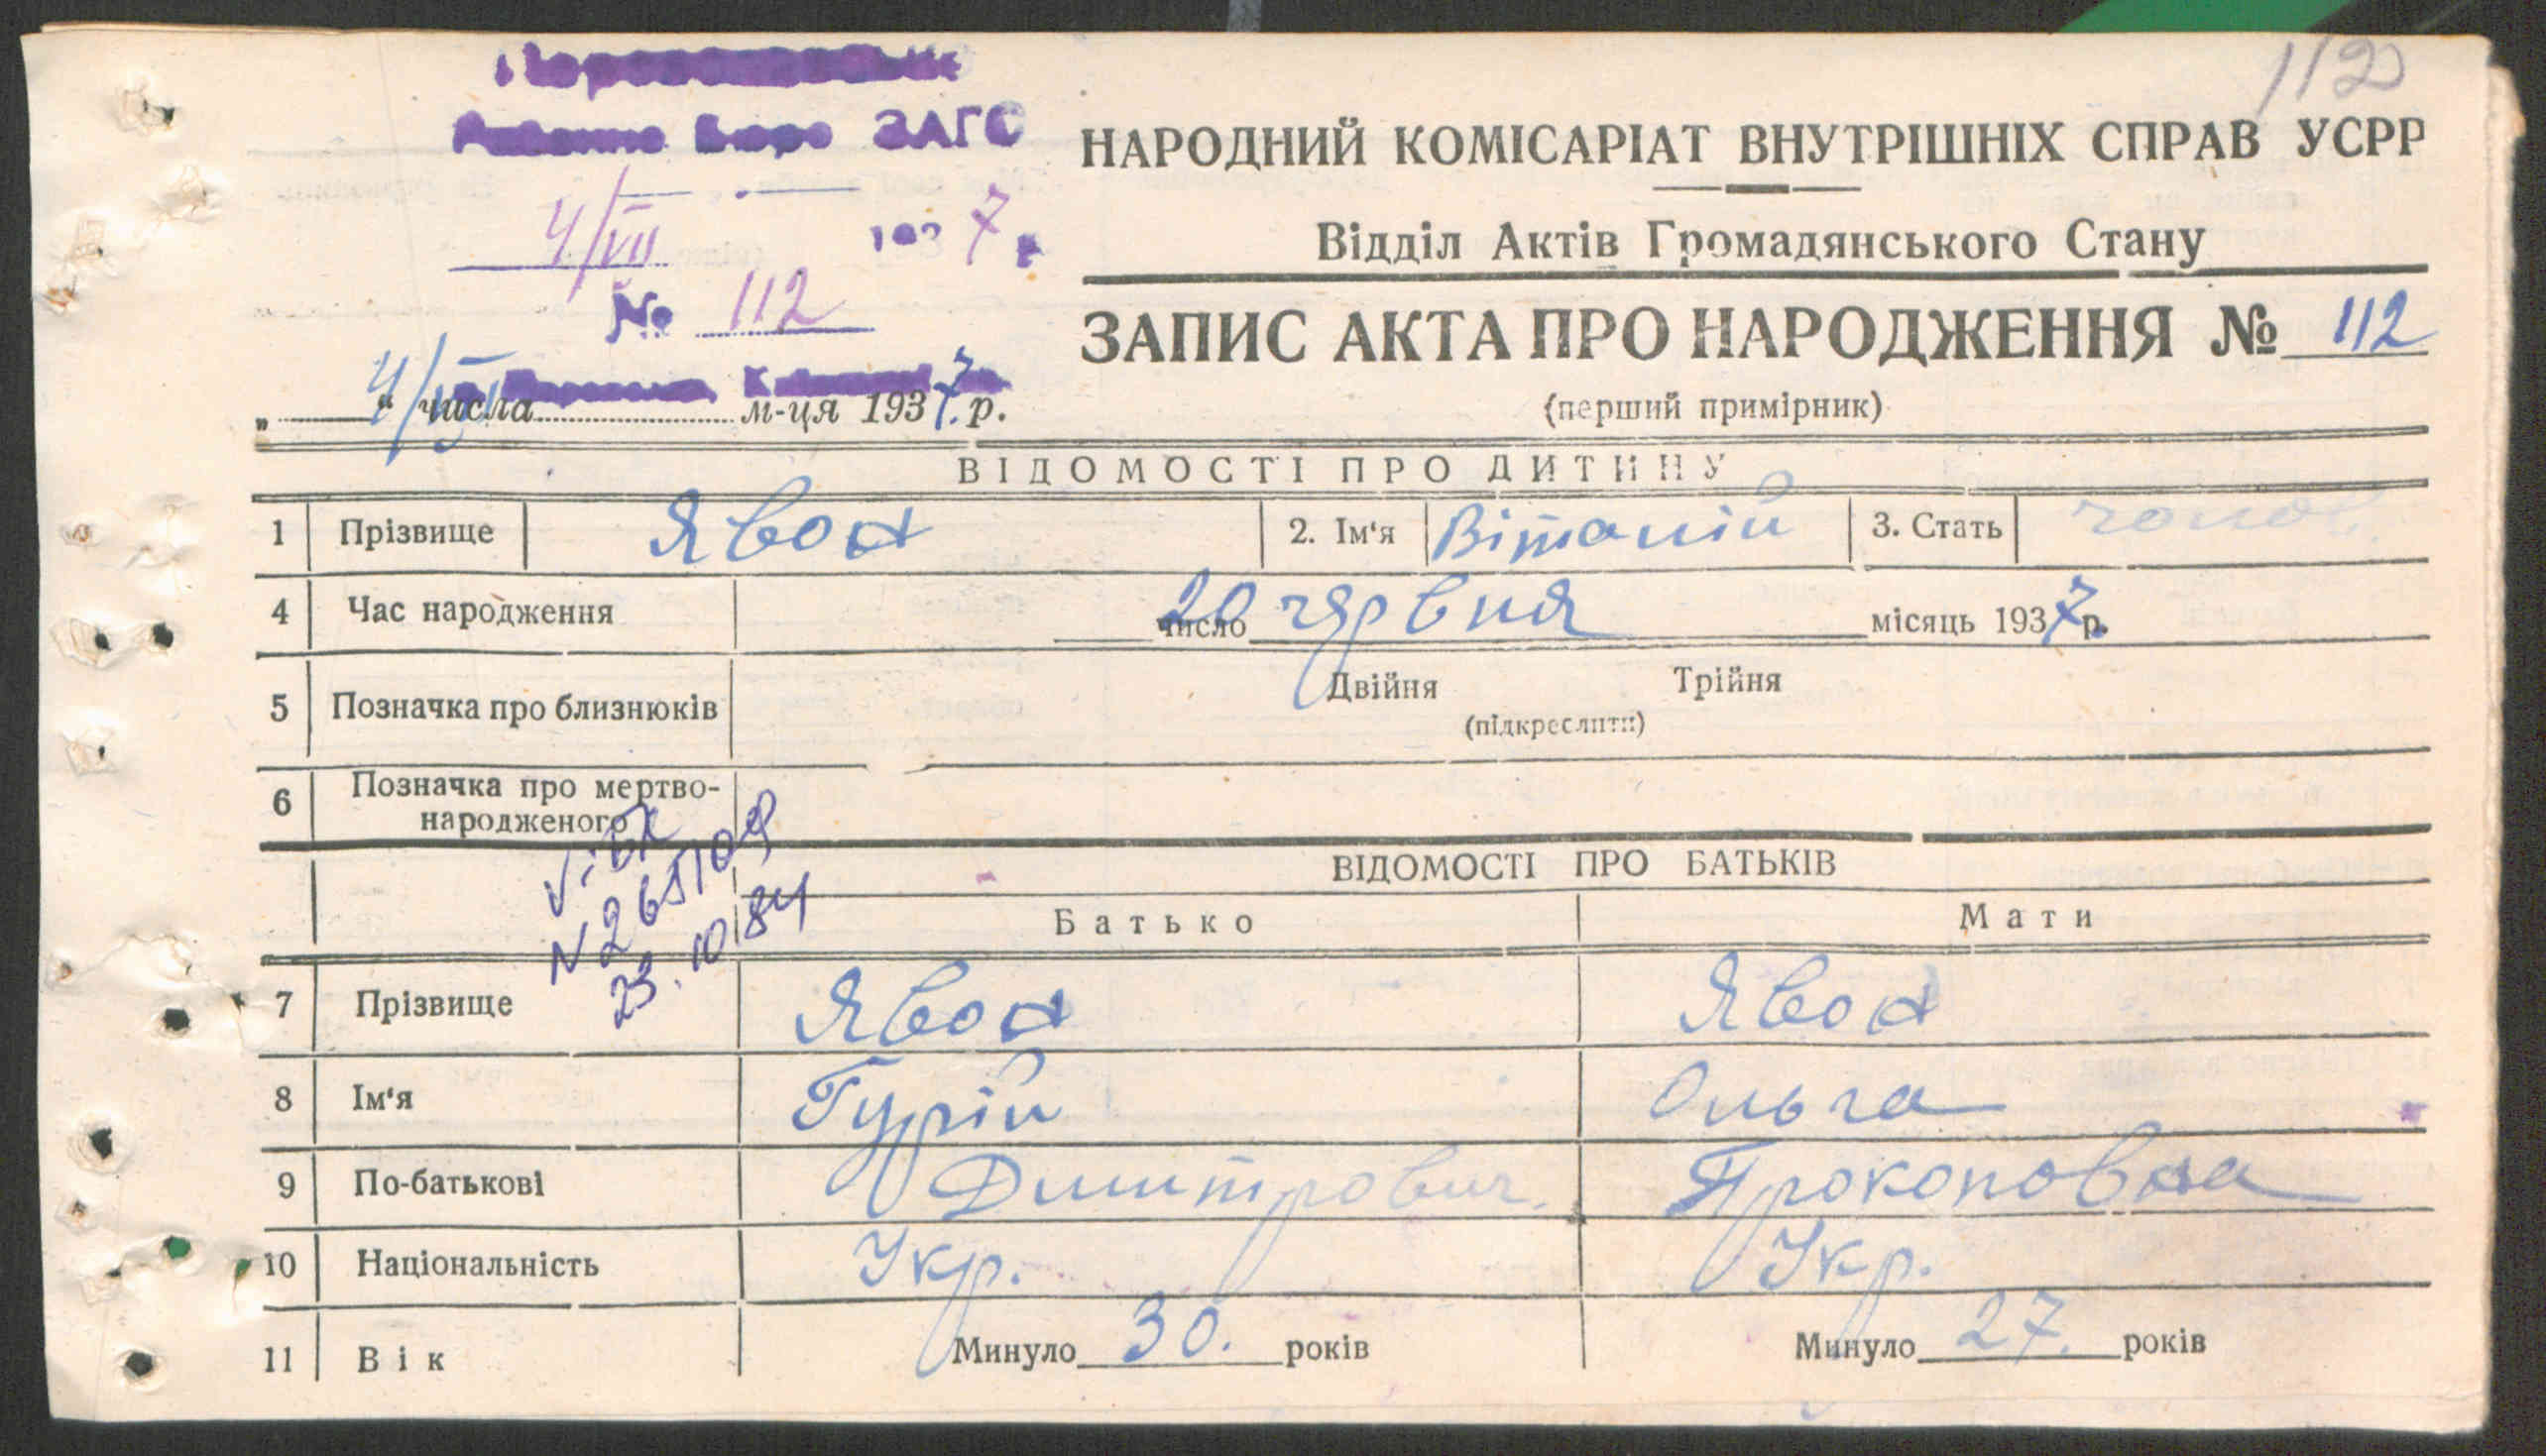 112
Бюро ЗАГС
НАРОДНИЙ КОМІСАРІАТ ВНУТРІШНІХ СПРАВ УСРР
4/VII 1937 р
Відділ Актів Громадянського Стану
№ 112
ЗАПИС АКТА ПРО НАРОДЖЕННЯ № 112
„4/VII“ числа м-ця 1937.р.
(перший примірник)
ВІДОМОСТІ ПРО ДИТИНУ
1 Прізвище Явон 2. Ім‘я Віталій 3. Стать чолов.
4 Час народження 20 число червня місяць 1937 р.
5 Позначка про близнюків Двійня Трійня
(підкреслити)
6 Позначка про мертво-
народженого
V-БК
N265109
23.10.84
ВІДОМОСТІ ПРО БАТЬКІВ
Батько Мати
7 Прізвище Явон Явон
8 Ім‘я Гурій Ольга
9 По-батькові Дмитрович. Прокоповна
10 Національність Укр. Укр.
11 Вік Минуло 30. років Минуло 27. років